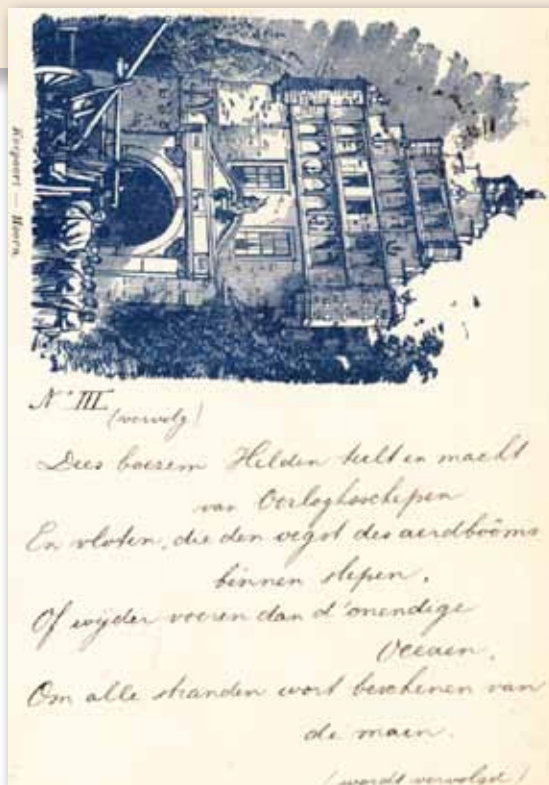 Koepoort — Hoorn.
No III (vervolg)
Dies boezem Helden teelt en macht
van Oorloghsschepen
En vloten, die den oegst des aerdbôôms
binnen slepen,
Of wijder voeren dan d'onendige
Oceaen,
Om alle stranden wort beschenen van
de maen.
(wordt vervolgd)